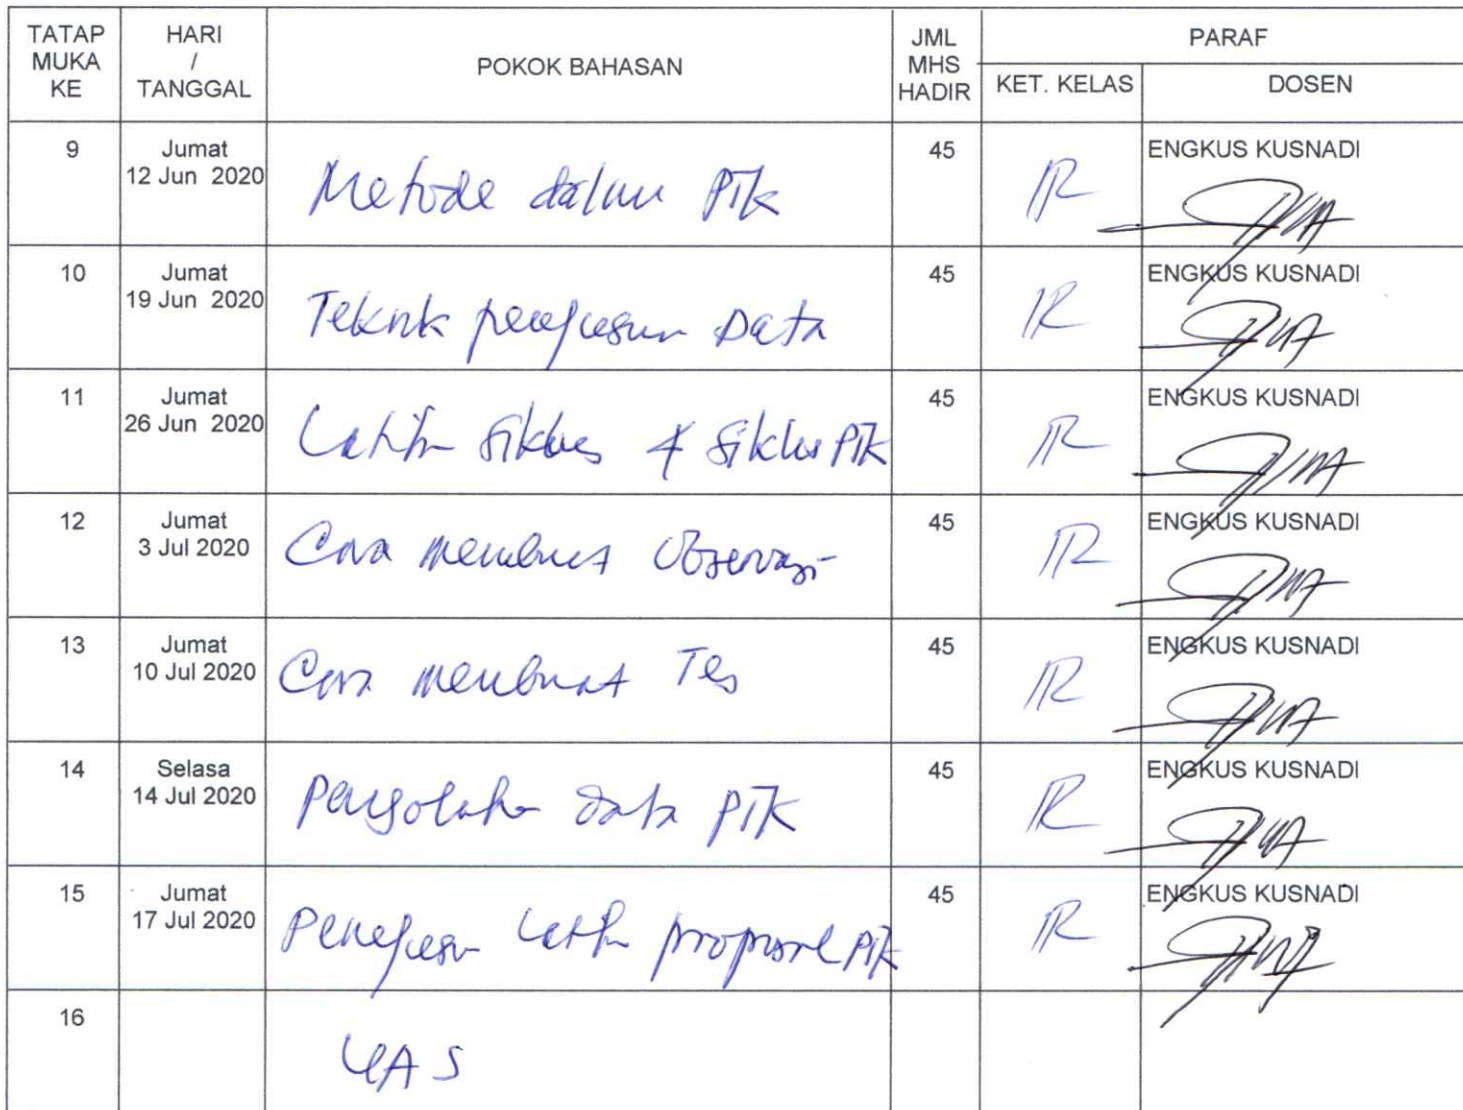 TATAP MUKA KE HARI / TANGGAL POKOK BAHASAN JML MHS HADIR PARAF
KET. KELAS DOSEN
9 Jumat 12 Jun 2020 Metode dalam PTK 45 ENGKUS KUSNADI
10 Jumat 19 Jun 2020 Teknik Data 45 ENGKUS KUSNADI
11 Jumat 26 Jun 2020 siklus siklus PTK 45 ENGKUS KUSNADI
12 Jumat 3 Jul 2020 Cara membuat Observasi 45 ENGKUS KUSNADI
13 Jumat 10 Jul 2020 Cara membuat Tes 45 ENGKUS KUSNADI
14 Selasa 14 Jul 2020 Pengolahan data PTK 45 ENGKUS KUSNADI
15 Jumat 17 Jul 2020 proposal PTK 45 ENGKUS KUSNADI
16 UAS